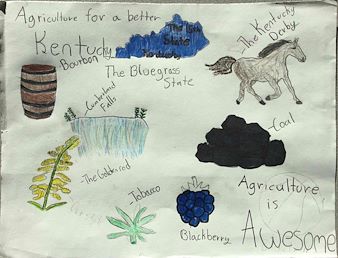 Agriculture for a better
Kentucky
The 15th
State
Kentucky
Bourbon
The Bluegrass
State
-The Kentucky
Derby
-Cumberland
Falls
-Coal
-The Goldenrod
-Tobacco
Blackberry
Agriculture
is
Awesome